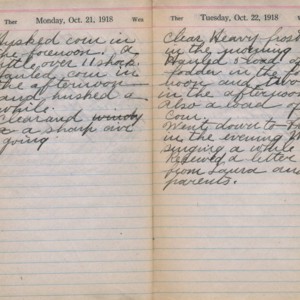 Ther Monday, Oct. 21, 1918 Wea
Husked corn in
the forenoon. a
little over 11 shock
Hauled corn in
the afternoon
and husked a
while.
Clear and windy
a sharp air
going
Ther Tuesday, Oct. 22, 1918
Clear Heavy frost
in the morning
Hauled 3 load of
fodder in the
noon and two
in the afternoon
Also a load of
Corn.
Went down to
in the evening
singing a while
Received a letter
from Laura and
parents.